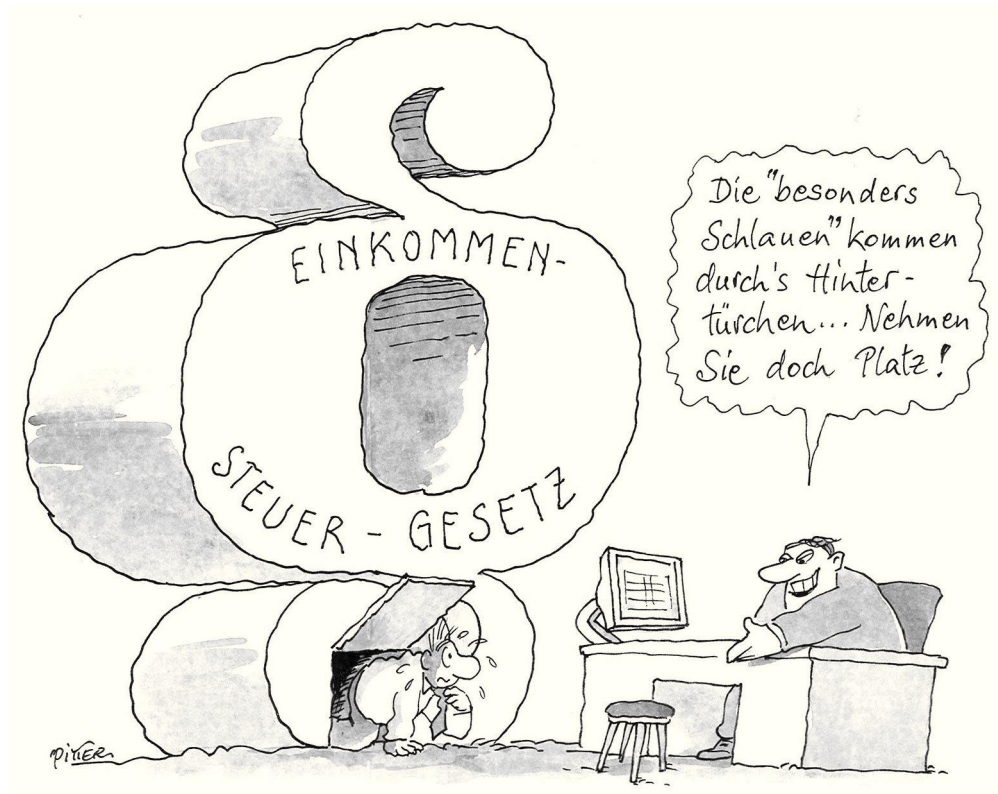 EINKOMMEN-
STEUER-GESETZ
Die "besonders
Schlauen" kommen
durch's Hinter-
türchen... Nehmen
Sie doch Platz!